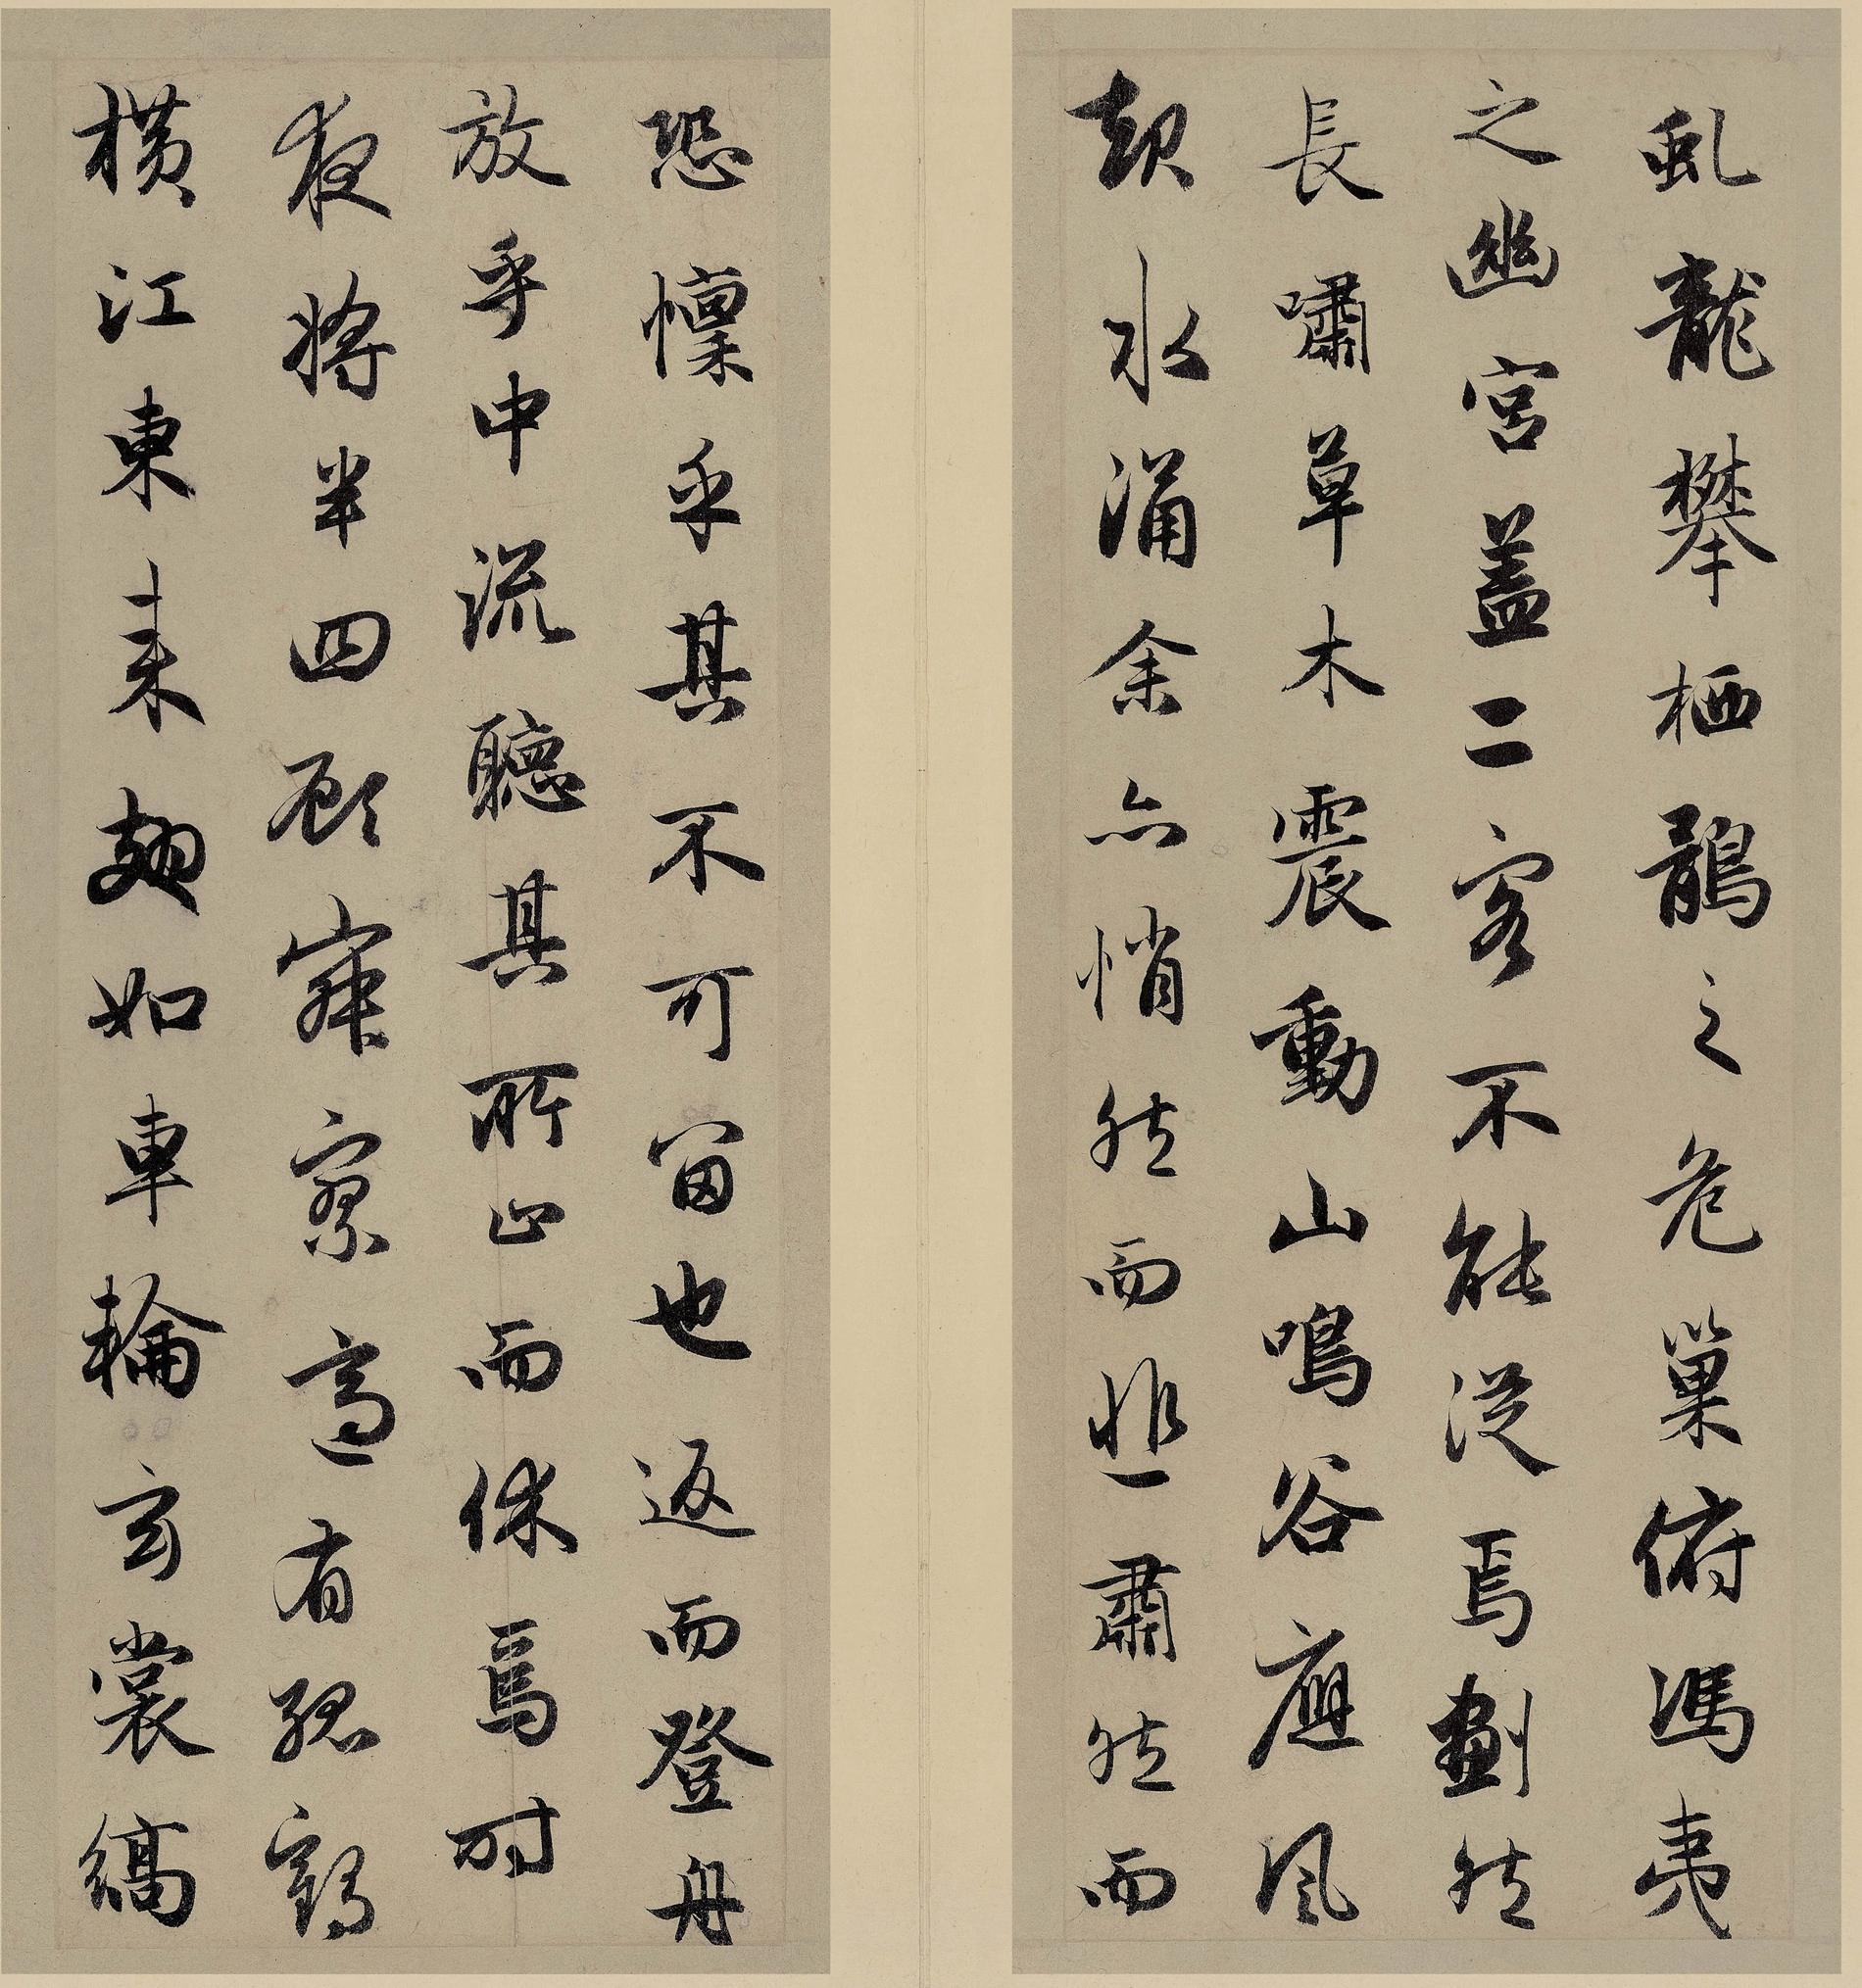 虬龍攀栖鶻之危巢俯馮夷
之幽宮蓋二客不能從焉劃然
長嘯草木震動山鳴谷應風
起水涌余亦悄然而悲肅然而
恐懍乎其不可留也返而登舟
放乎中流聽其所止而休焉時
夜將半四顧寂寥適有孤鶴
橫江東來翅如車輪玄裳縞